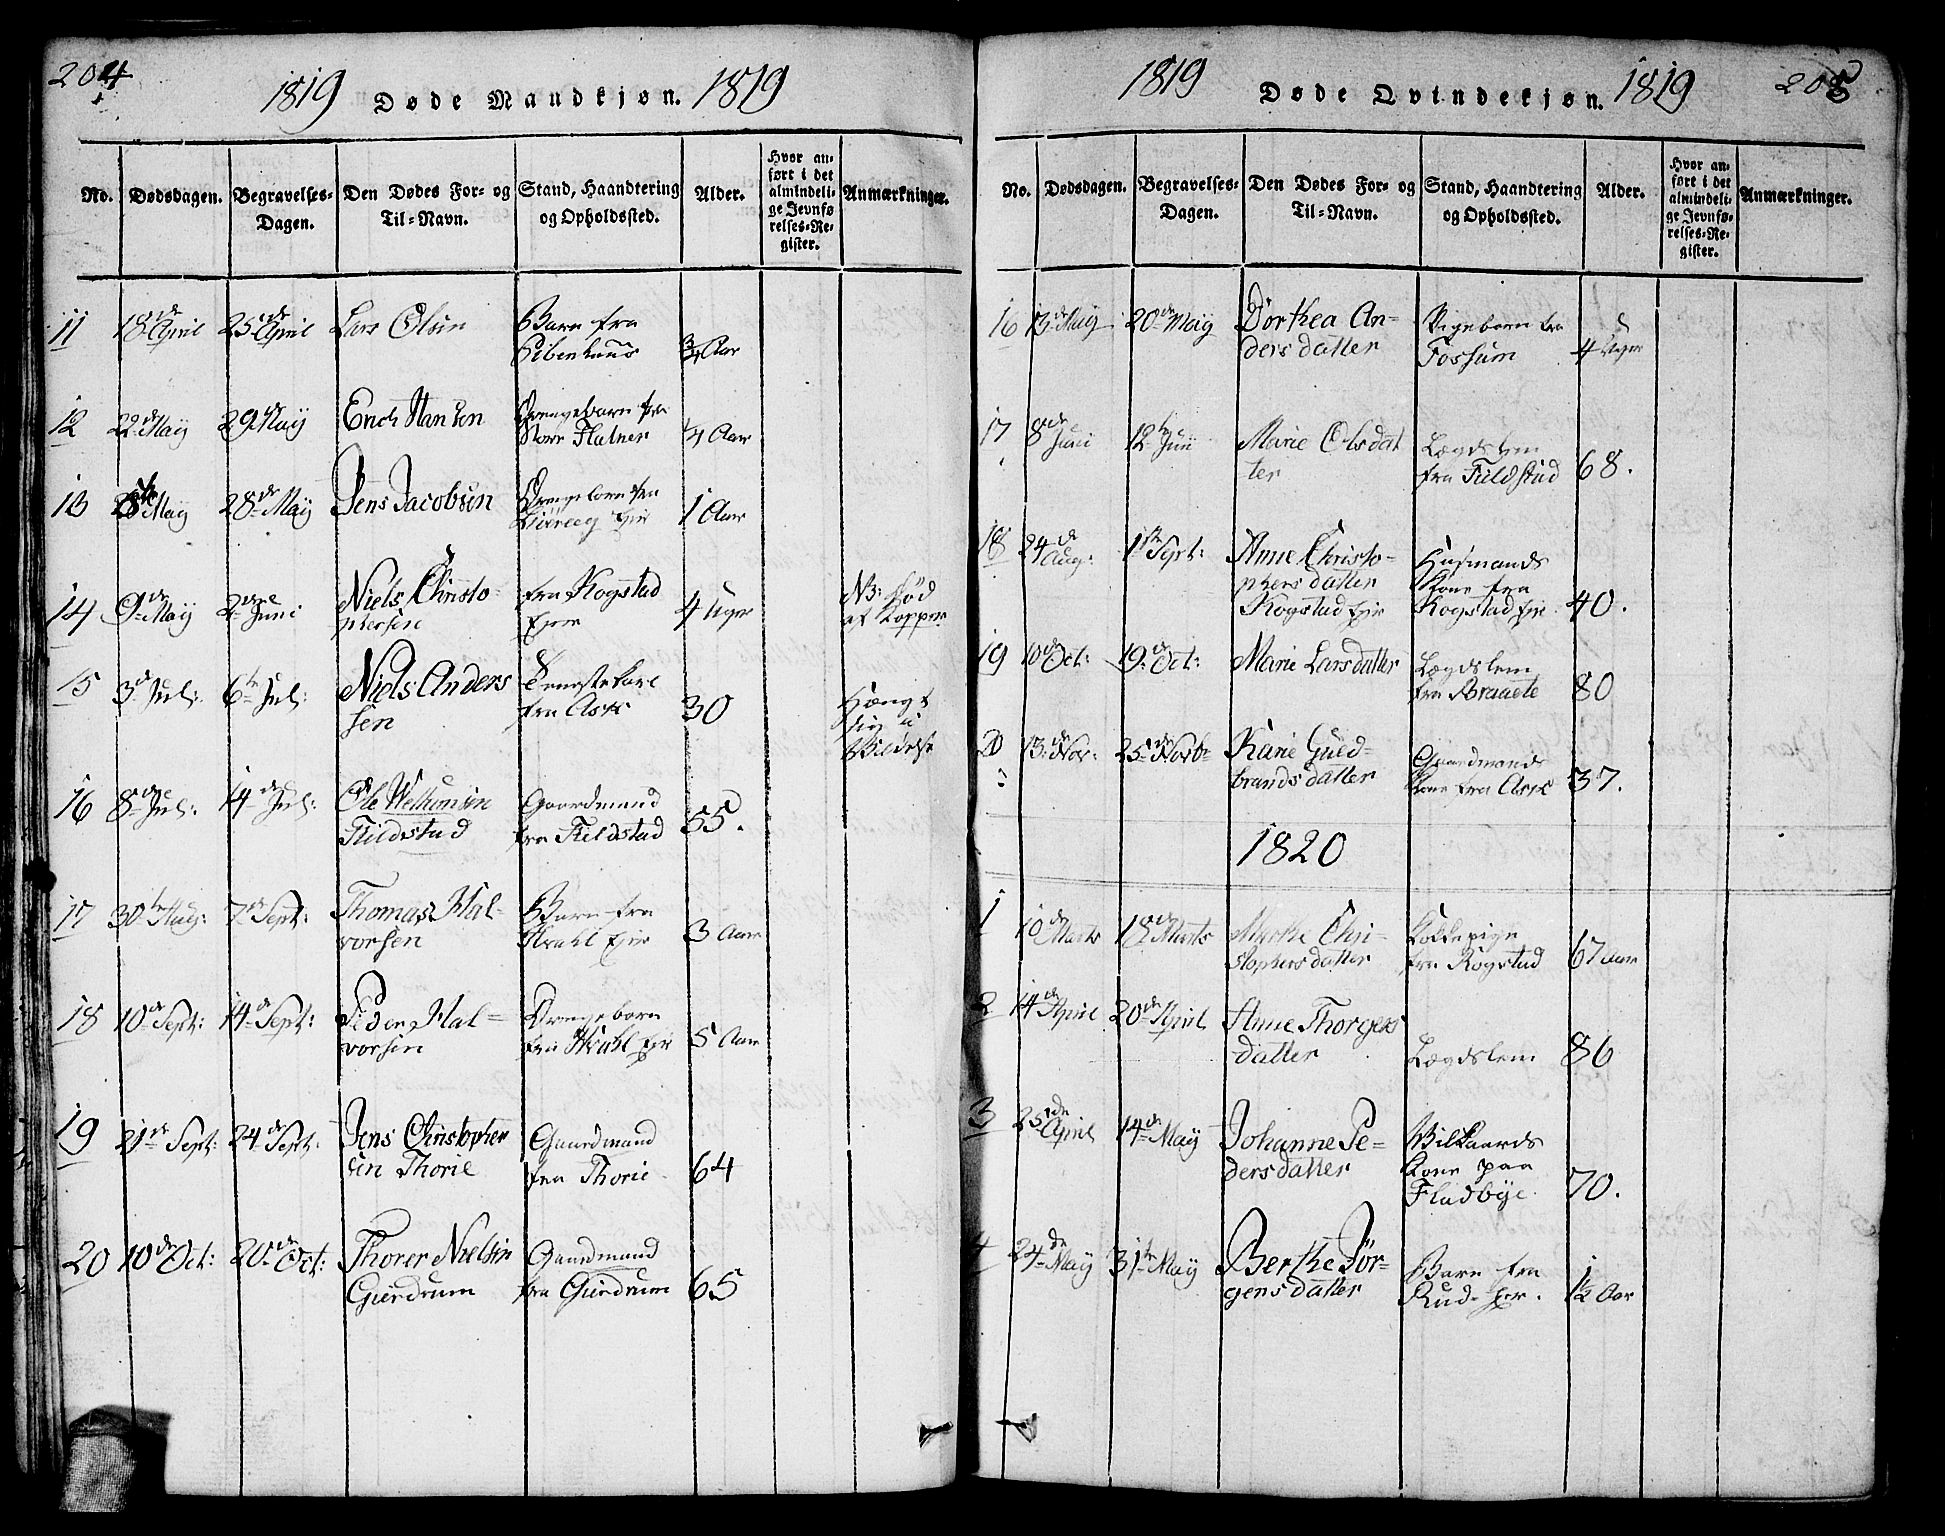 204
1819 Døde Mandkjøn. 1819
No.
Dødsdagen.
Begravelses-
Dagen.
Den Dødes For- og
Til-Navn.
Stand, Haandtering
og Opholdssted.
Alder.
Hvor an-
ført i det
almindeli-
ge Jevnfø-
relses-Re-
gister.
Anmærkninger.
11 18de April 25de April Lars Olsen Barn fra
3/4 Aar
12 22de May 29de May Erich Hansen Drengebarn fra
Store Flatner 1/4 Aar
13 May 28de May Jens Jacobsen Drengebarn fra
Ejer 1 Aar
14 9de May 2den Juni Niels Christo-
phersen fra Kogstad
Ejer 4 Uger NB: død
af Kopper
15 3de Jul: 6te Jul: Niels Anders
sen Tienestekarl
fra Ask 30 Hængt
sig i
Vildelse
16 8de Jul: 14de Jul: Ole Wethumsen
Kildstad Gaardmand
fra Kieldstad 55.
17 30te Aug: 7de Sept: Thomas Hal-
vorsen Barn fra
Krahl Ejer 3 Aar
18 10de Sept: 14de Sept: Peder Hal-
vorsen Drengebarn
fra Krahl Ejer 5 Aar
19 21de Sept: 24de Sept: Jens Christopher
sen Thorie Gaardmand
fra Thorie 64
20 10de Oct: 20de Oct: Thorer Nielsen
Gierdrum Gaardmand
fra Gierdrum 65
1819 Døde Qvindekjøn. 1819 205
No.
Dødsdagen.
Begravelses-
Dagen.
Den Dødes For- og
Til-Navn.
Stand, Haandtering
og Opholdssted.
Alder.
Hvor an-
ført i det
almindeli-
ge Jevnfø-
relses-Re-
gister.
Anmærkninger.
16 13de May 20de May Dorthea An-
dersdatter Pigebarn fra
Fossum 4 Uger
17 8de Juni 12te Juni Marie Olsdat
ter Lægdslem
fra Kieldstad 68.
18 24de Aug: 1ste Sept: Anne Christo-
phersdatter
Kogstad Ejer Husmands
Kone fra
Kogstad Eje 40.
19 10de Oct: 19de Oct: Marie Larsdatter Lægdslem
fra Braaete 80
20 13de Nov: 25de Novbr Karie Guld-
brandsdatter Gaardmands
Kone fra Ask 37.
1820
1 10de Marts 18de Marts Marthe Chri-
stophersdatter
fra Kogstad 67 Aar
2 14de April 20de April Anne Thorgers
datter Lægdslem 86
3 25de April 14de May Johanne Pe-
dersdatter
Kone paa
Fladbye. 70.
4 24de May 31te May Berthe Jør-
gensdatter Barn fra
Rud Ejer. 1 1/2 Aar